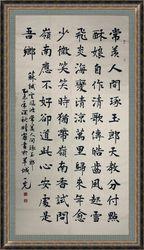 常羨人間琢玉郎天教分付點
酥娘自作清歌傳皓齒風起雪
飛炎海變清涼萬里歸來年愈
少微笑笑時猶帶嶺南香試問
嶺南應不好卻道此心安處是
吾鄉
蘇軾定風波常羨人間琢玉郎
書於羊城